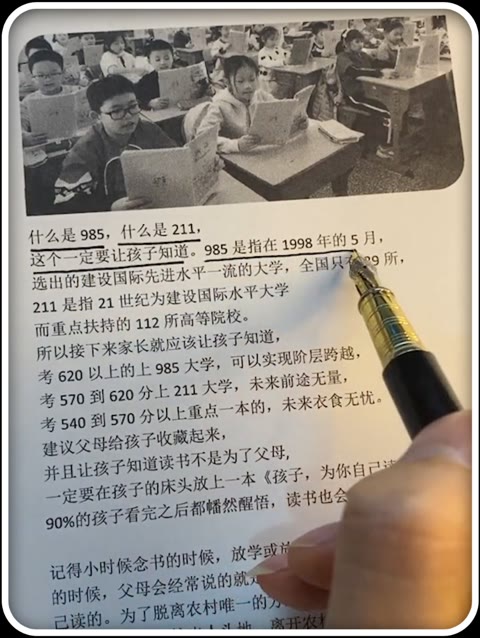 什么是 985，什么是 211，
这个一定要让孩子知道。985 是指在 1998 年的 5 月，
选出的建设国际先进水平一流的大学，全国只有 39 所，
211 是指 21 世纪为建设国际水平大学
而重点扶持的 112 所高等院校。
所以接下来家长就应该让孩子知道，
考 620 以上的上 985 大学，可以实现阶层跨越，
考 570 到 620 分上 211 大学，未来前途无量，
考 540 到 570 分以上重点一本的，未来衣食无忧。
建议父母给孩子收藏起来，
并且让孩子知道读书不是为了父母，
一定要在孩子的床头放上一本《孩子，为你自己读
90%的孩子看完之后都幡然醒悟，读书也会
记得小时候念书的时候，放学或
的时候，父母会经常说的就是
己读的。为了脱离农村唯一的方
离开农村